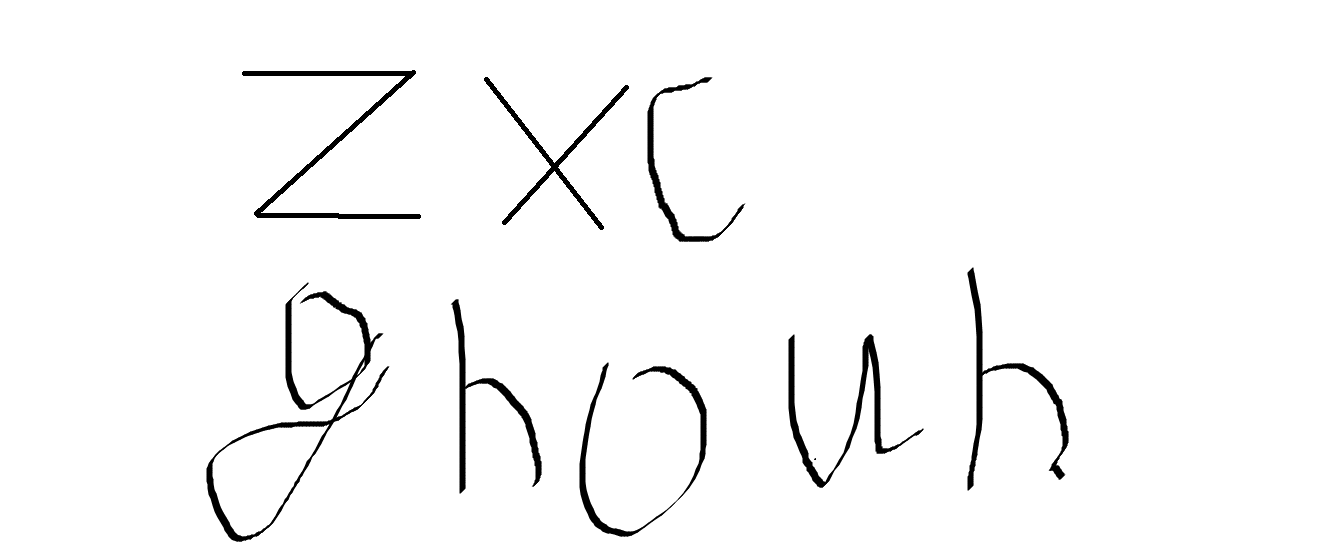 zxc
ghouh